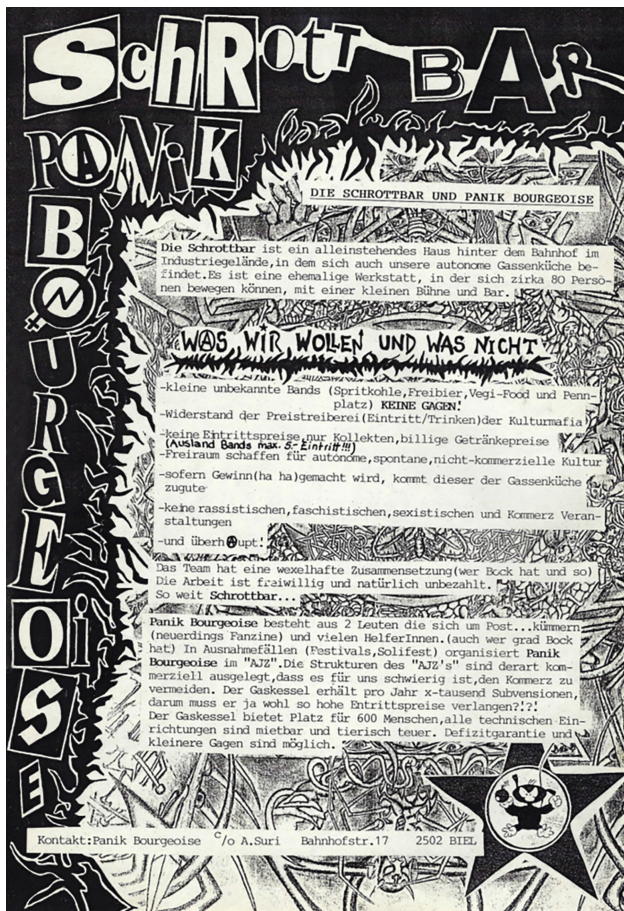 SCHROTT BAR
PANIK
BOURGEOISE
DIE SCHROTTBAR UND PANIK BOURGEOISE
Die Schrottbar ist ein alleinstehendes Haus hinter dem Bahnhof im
Industriegelände,in dem sich auch unsere autonome Gassenküche be-
findet.Es ist eine ehemalige Werkstatt, in der sich zirka 80 Perso-
nen bewegen können, mit einer kleinen Bühne und Bar.
WAS WIR WOLLEN UND WAS NICHT
-kleine unbekannte Bands (Spritkohle,Freibier,Vegi-Food und Penn-
platz) KEINE GAGEN!
-Widerstand der Preistreiberei(Eintritt/Trinken)der Kulturmafia
-keine Eintrittspreise,nur Kollekten,billige Getränkepreise
(Ausland Bands max. 5.- Eintritt!!!)
-Freiraum schaffen für autonome,spontane,nicht-kommerzielle Kultur
-sofern Gewinn(ha ha)gemacht wird, kommt dieser der Gassenküche
zugute
-keine rassistischen,faschistischen,sexistischen und Kommerz Veran-
staltungen
-und überhAupt!
Das Team hat eine wexelhafte Zusammensetzung(wer Bock hat und so)
Die Arbeit ist freiwillig und natürlich unbezahlt.
So weit Schrottbar...
Panik Bourgeoise besteht aus 2 Leuten die sich um Post...kümmern
(neuerdings Fanzine) und vielen HelferInnen.(auch wer grad Bock
hat) In Ausnahmefällen (Festivals,Solifest) organisiert Panik
Bourgeoise im "AJZ".Die Strukturen des "AJZ's" sind derart kom-
merziell ausgelegt,dass es für uns schwierig ist,den Kommerz zu
vermeiden. Der Gaskessel erhält pro Jahr x-tausend Subvensionen,
darum muss er ja wohl so hohe Entrittspreise verlangen?!?!
Der Gaskessel bietet Platz für 600 Menschen,alle technischen Ein-
richtungen sind mietbar und tierisch teuer. Defizitgarantie und
kleinere Gagen sind möglich.
Kontakt:Panik Bourgeoise c/o A.Suri Bahnhofstr.17 2502 BIEL